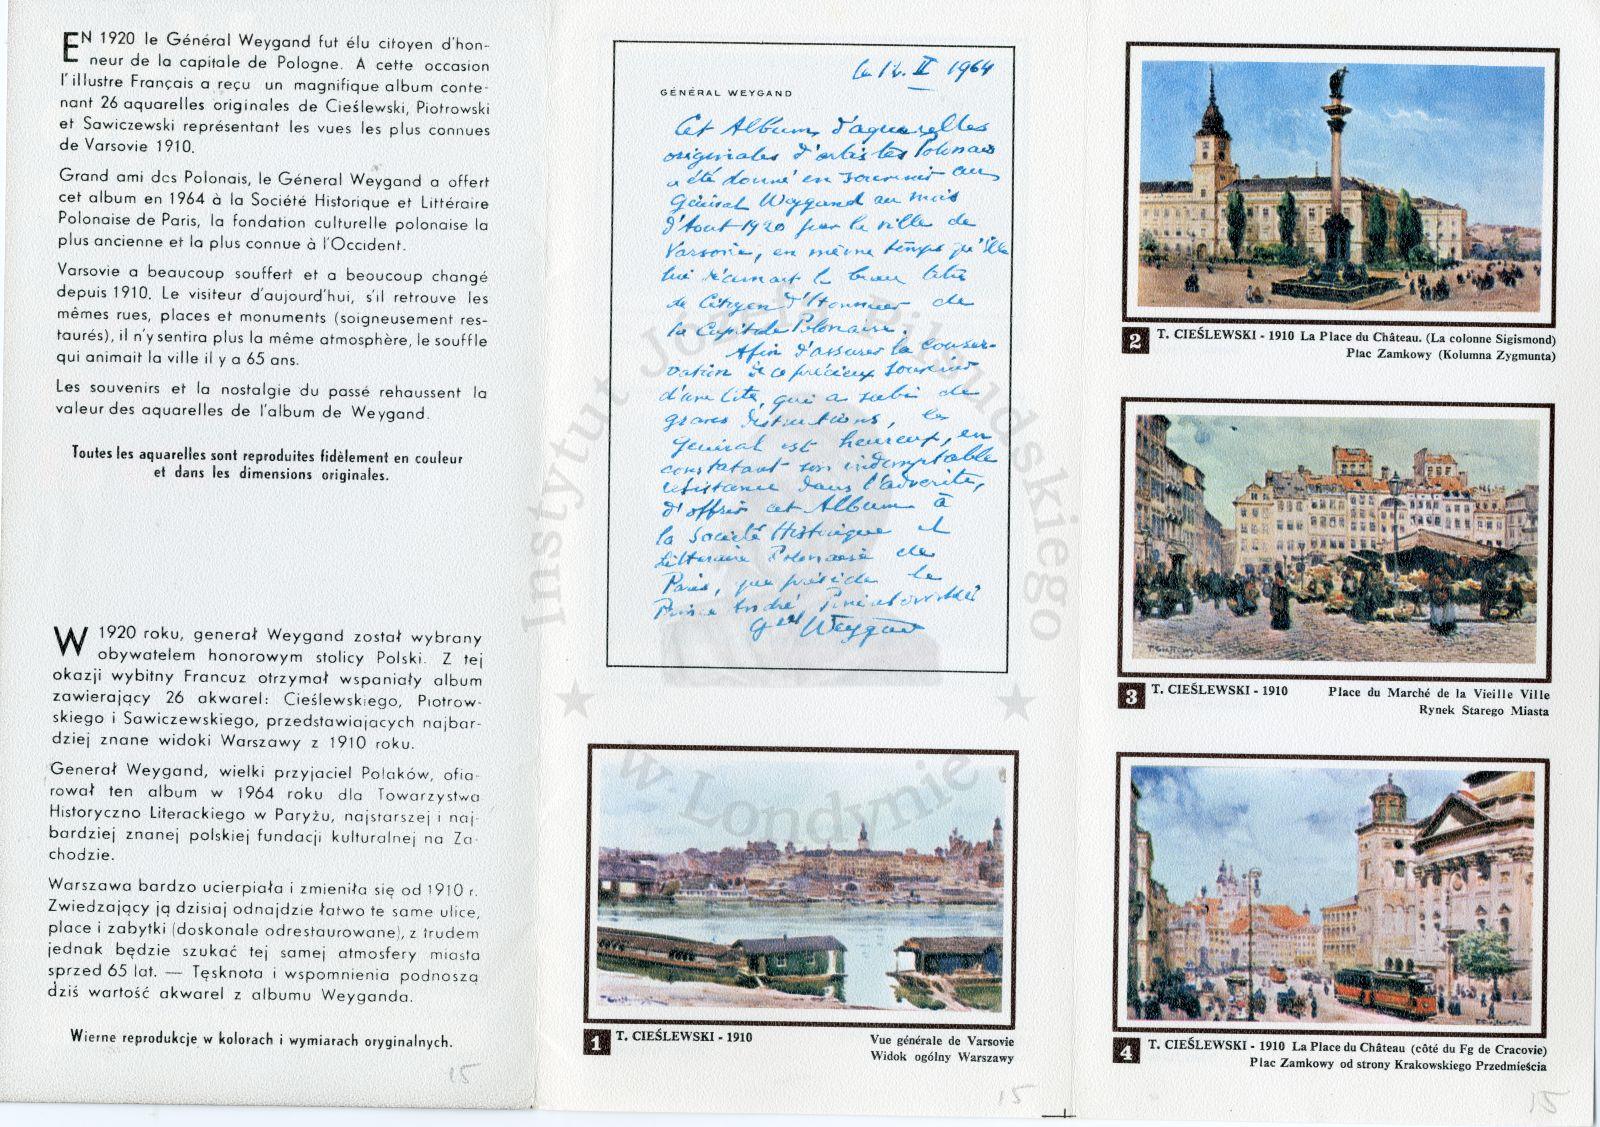 EN 1920 le Général Weygand fut élu citoyen d'hon-
neur de la capitale de Pologne. A cette occasion
l'illustre Français a reçu un magnifique album conte-
nant 26 aquarelles originales de Cieślewski, Piotrowski
et Sawiczewski représentant les vues les plus connues
de Varsovie 1910.
Grand ami des Polonais, le Géneral Weygand a offert
cet album en 1964 à la Société Historique et Littéraire
Polonaise de Paris, la fondation culturelle polonaise la
plus ancienne et la plus connue à l'Occident.
Varsovie a beaucoup souffert et a beoucoup changé
depuis 1910. Le visiteur d'aujourd'hui, s'il retrouve les
mêmes rues, places et monuments (soigneusement res-
taurés), il n'y sentira plus la même atmosphère, le souffle
qui animait la ville il y a 65 ans.
Les souvenirs et la nostalgie du passé rehaussent la
valeur des aquarelles de l'album de Weygand.
Toutes les aquarelles sont reproduites fidèlement en couleur
et dans les dimensions originales.
W 1920 roku, generał Weygand został wybrany
obywatelem honorowym stolicy Polski. Z tej
okazji wybitny Francuz otrzymał wspaniały album
zawierający 26 akwarel: Cieślewskiego, Piotrow-
skiego i Sawiczewskiego, przedstawiających najbar-
dziej znane widoki Warszawy z 1910 roku.
Generał Weygand, wielki przyjaciel Polaków, ofia-
rował ten album w 1964 roku dla Towarzystwa
Historyczno Literackiego w Paryżu, najstarszej i naj-
bardziej znanej polskiej fundacji kulturalnej na Za-
chodzie.
Warszawa bardzo ucierpiała i zmieniła się od 1910 r.
Zwiedzający ją dzisiaj odnajdzie łatwo te same ulice,
place i zabytki (doskonale odrestaurowane), z trudem
jednak będzie szukać tej samej atmosfery miasta
sprzed 65 lat. — Tęsknota i wspomnienia podnoszą
dziś wartość akwarel z albumu Weyganda.
Wierne reprodukcje w kolorach i wymiarach oryginalnych.
15
le 12. II 1964
GÉNÉRAL WEYGAND
Cet Album d'aquarelles
originales d'artistes Polonais
a été donné en souvenir au
Général Weygand au mois
d'Aout 1920 par la ville de
Varsovie, en même temps qu'elle
lui décernait le beau titre
de Citoyen d'Honneur de
la Capitale Polonaise.
Afin d'assurer la conser-
vation de ce précieux souvenir
d'une Cité, qui a subi de
graves destructions, le
Général est heureux, en
constatant son indomptable
résistance dans l'adversité,
d'offrir cet Album à
la Société Historique et
Littéraire Polonaise de
Paris, que préside le
Prince André Poniatowski
Gal Weygand
Instytut Józefa Piłsudskiego
w Londynie
1 T. CIEŚLEWSKI - 1910 Vue générale de Varsovie
Widok ogólny Warszawy
15
2 T. CIEŚLEWSKI - 1910 La Place du Château. (La colonne Sigismond)
Plac Zamkowy (Kolumna Zygmunta)
3 T. CIEŚLEWSKI - 1910 Place du Marché de la Vieille Ville
Rynek Starego Miasta
4 T. CIEŚLEWSKI - 1910 La Place du Château (côté du Fg de Cracovie)
Plac Zamkowy od strony Krakowskiego Przedmieścia
15